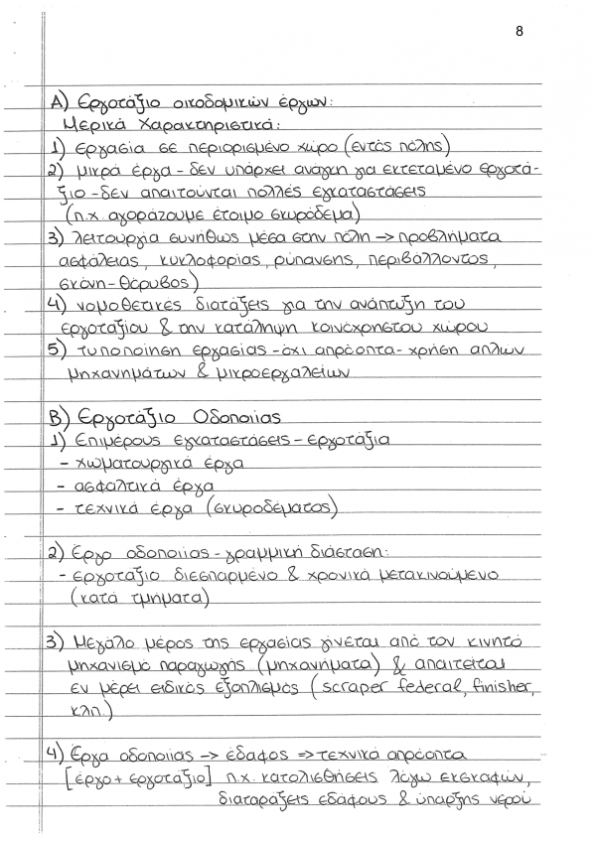 8
Α) Εργοτάξιο οικοδομικών έργων:
Μερικά Χαρακτηριστικά:
1) εργασία σε περιορισμένο χώρο (εντός πόλης)
2) μικρά έργα - δεν υπάρχει ανάγκη για εκτεταμένο εργοτά-
ξιο - δεν απαιτούνται πολλές εγκαταστάσεις
(π.χ. αγοράζουμε έτοιμο σκυρόδεμα)
3) λειτουργία συνήθως μέσα στην πόλη → προβλήματα
ασφάλειας, κυκλοφορίας, ρύπανσης, περιβάλλοντος,
σκόνη - θόρυβος)
4) νομοθετικές διατάξεις για την ανάπτυξη του
εργοταξίου & την κατάληψη κοινόχρηστου χώρου
5) τυποποίηση εργασίας - όχι απρόοπτα - χρήση απλών
μηχανημάτων & μικροεργαλείων
Β) Εργοτάξιο Οδοποιίας
1) Επιμέρους εγκαταστάσεις - εργοτάξια
- χωματουργικά έργα
- ασφαλτικά έργα
- τεχνικά έργα (σκυροδέματος)
2) Έργο οδοποιίας - γραμμική διάσταση:
- εργοτάξιο διεσπαρμένο & χρονικά μετακινούμενο
(κατά τμήματα)
3) Μεγάλο μέρος της εργασίας γίνεται από τον κινητό
μηχανισμό παραγωγής (μηχανήματα) & απαιτείται
εν μέρει ειδικός εξοπλισμός (scraper federal, finisher,
κλπ.)
4) Έργα οδοποιίας → έδαφος ⇒ τεχνικά απρόοπτα
[έργο + εργοτάξιο] π.χ. κατολισθήσεις λόγω εκσκαφών,
διαταράξεις εδάφους & ύπαρξης νερού